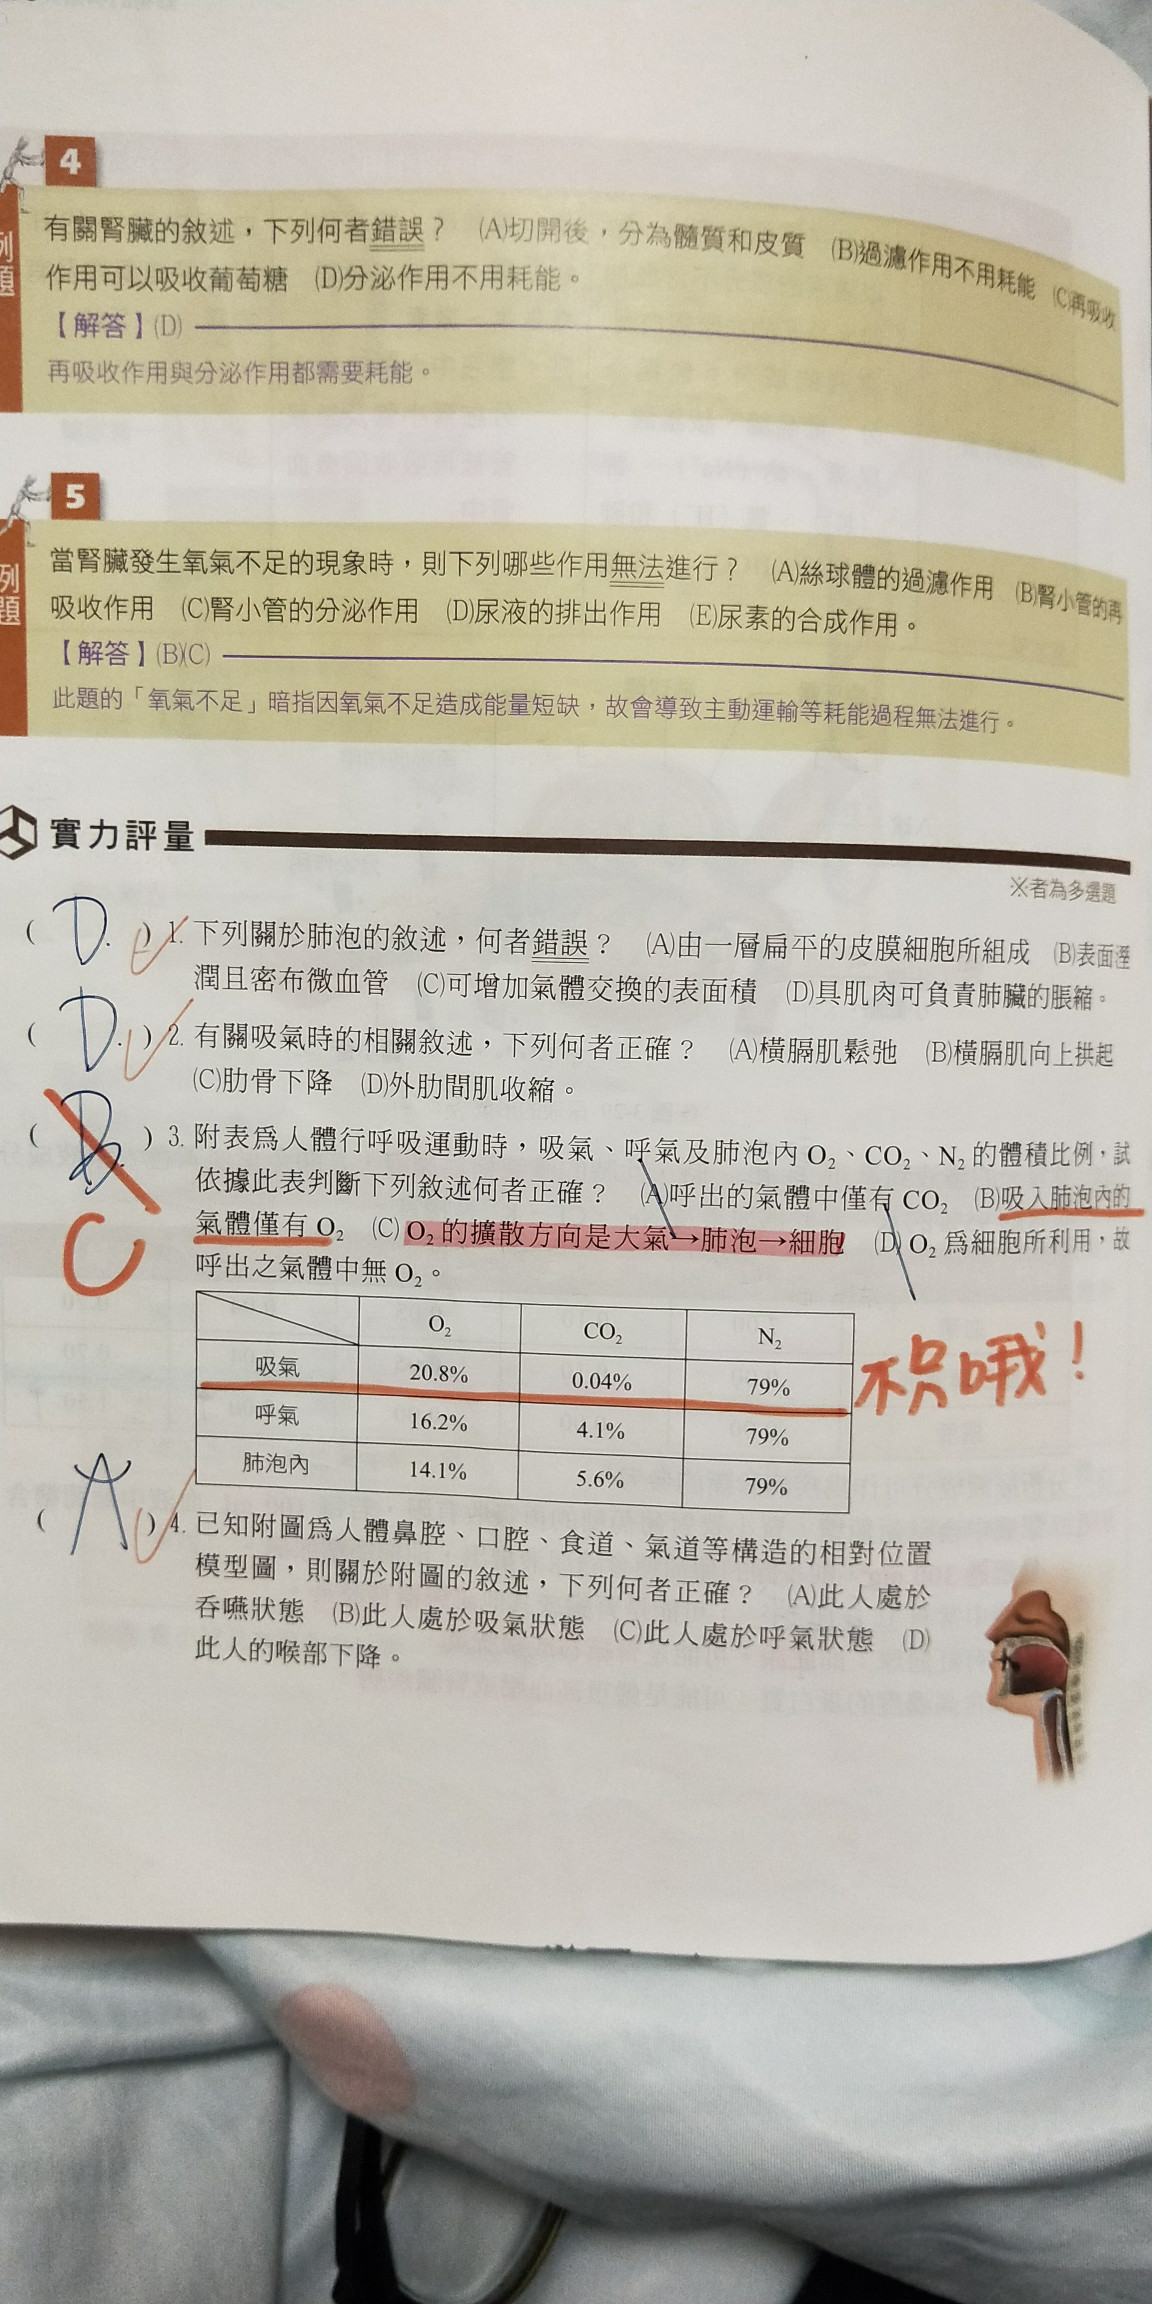 4
例題
有關腎臟的敘述，下列何者錯誤？ (A)切開後，分為髓質和皮質 (B)過濾作用不用耗能 (C)再吸收
作用可以吸收葡萄糖 (D)分泌作用不用耗能。
【解答】(D)
再吸收作用與分泌作用都需要耗能。
5
例題
當腎臟發生氧氣不足的現象時，則下列哪些作用無法進行？ (A)絲球體的過濾作用 (B)腎小管的再
吸收作用 (C)腎小管的分泌作用 (D)尿液的排出作用 (E)尿素的合成作用。
【解答】(B)(C)
此題的「氧氣不足」暗指因氧氣不足造成能量短缺，故會導致主動運輸等耗能過程無法進行。
實力評量
※者為多選題
( D. ) 1. 下列關於肺泡的敘述，何者錯誤？ (A)由一層扁平的皮膜細胞所組成 (B)表面溼
潤且密布微血管 (C)可增加氣體交換的表面積 (D)具肌肉可負責肺臟的脹縮。
( D. ) 2. 有關吸氣時的相關敘述，下列何者正確？ (A)橫膈肌鬆弛 (B)橫膈肌向上拱起
(C)肋骨下降 (D)外肋間肌收縮。
( B. ) 3. 附表為人體行呼吸運動時，吸氣、呼氣及肺泡內 O₂、CO₂、N₂ 的體積比例，試
依據此表判斷下列敘述何者正確？ (A)呼出的氣體中僅有 CO₂ (B)吸入肺泡內的
C
氣體僅有 O₂ (C) O₂ 的擴散方向是大氣→肺泡→細胞 (D) O₂ 為細胞所利用，故
呼出之氣體中無 O₂。
O₂ CO₂ N₂
吸氣 20.8% 0.04% 79%
不只哦！
呼氣 16.2% 4.1% 79%
肺泡內 14.1% 5.6% 79%
( A ) 4. 已知附圖為人體鼻腔、口腔、食道、氣道等構造的相對位置
模型圖，則關於附圖的敘述，下列何者正確？ (A)此人處於
吞嚥狀態 (B)此人處於吸氣狀態 (C)此人處於呼氣狀態 (D)
此人的喉部下降。